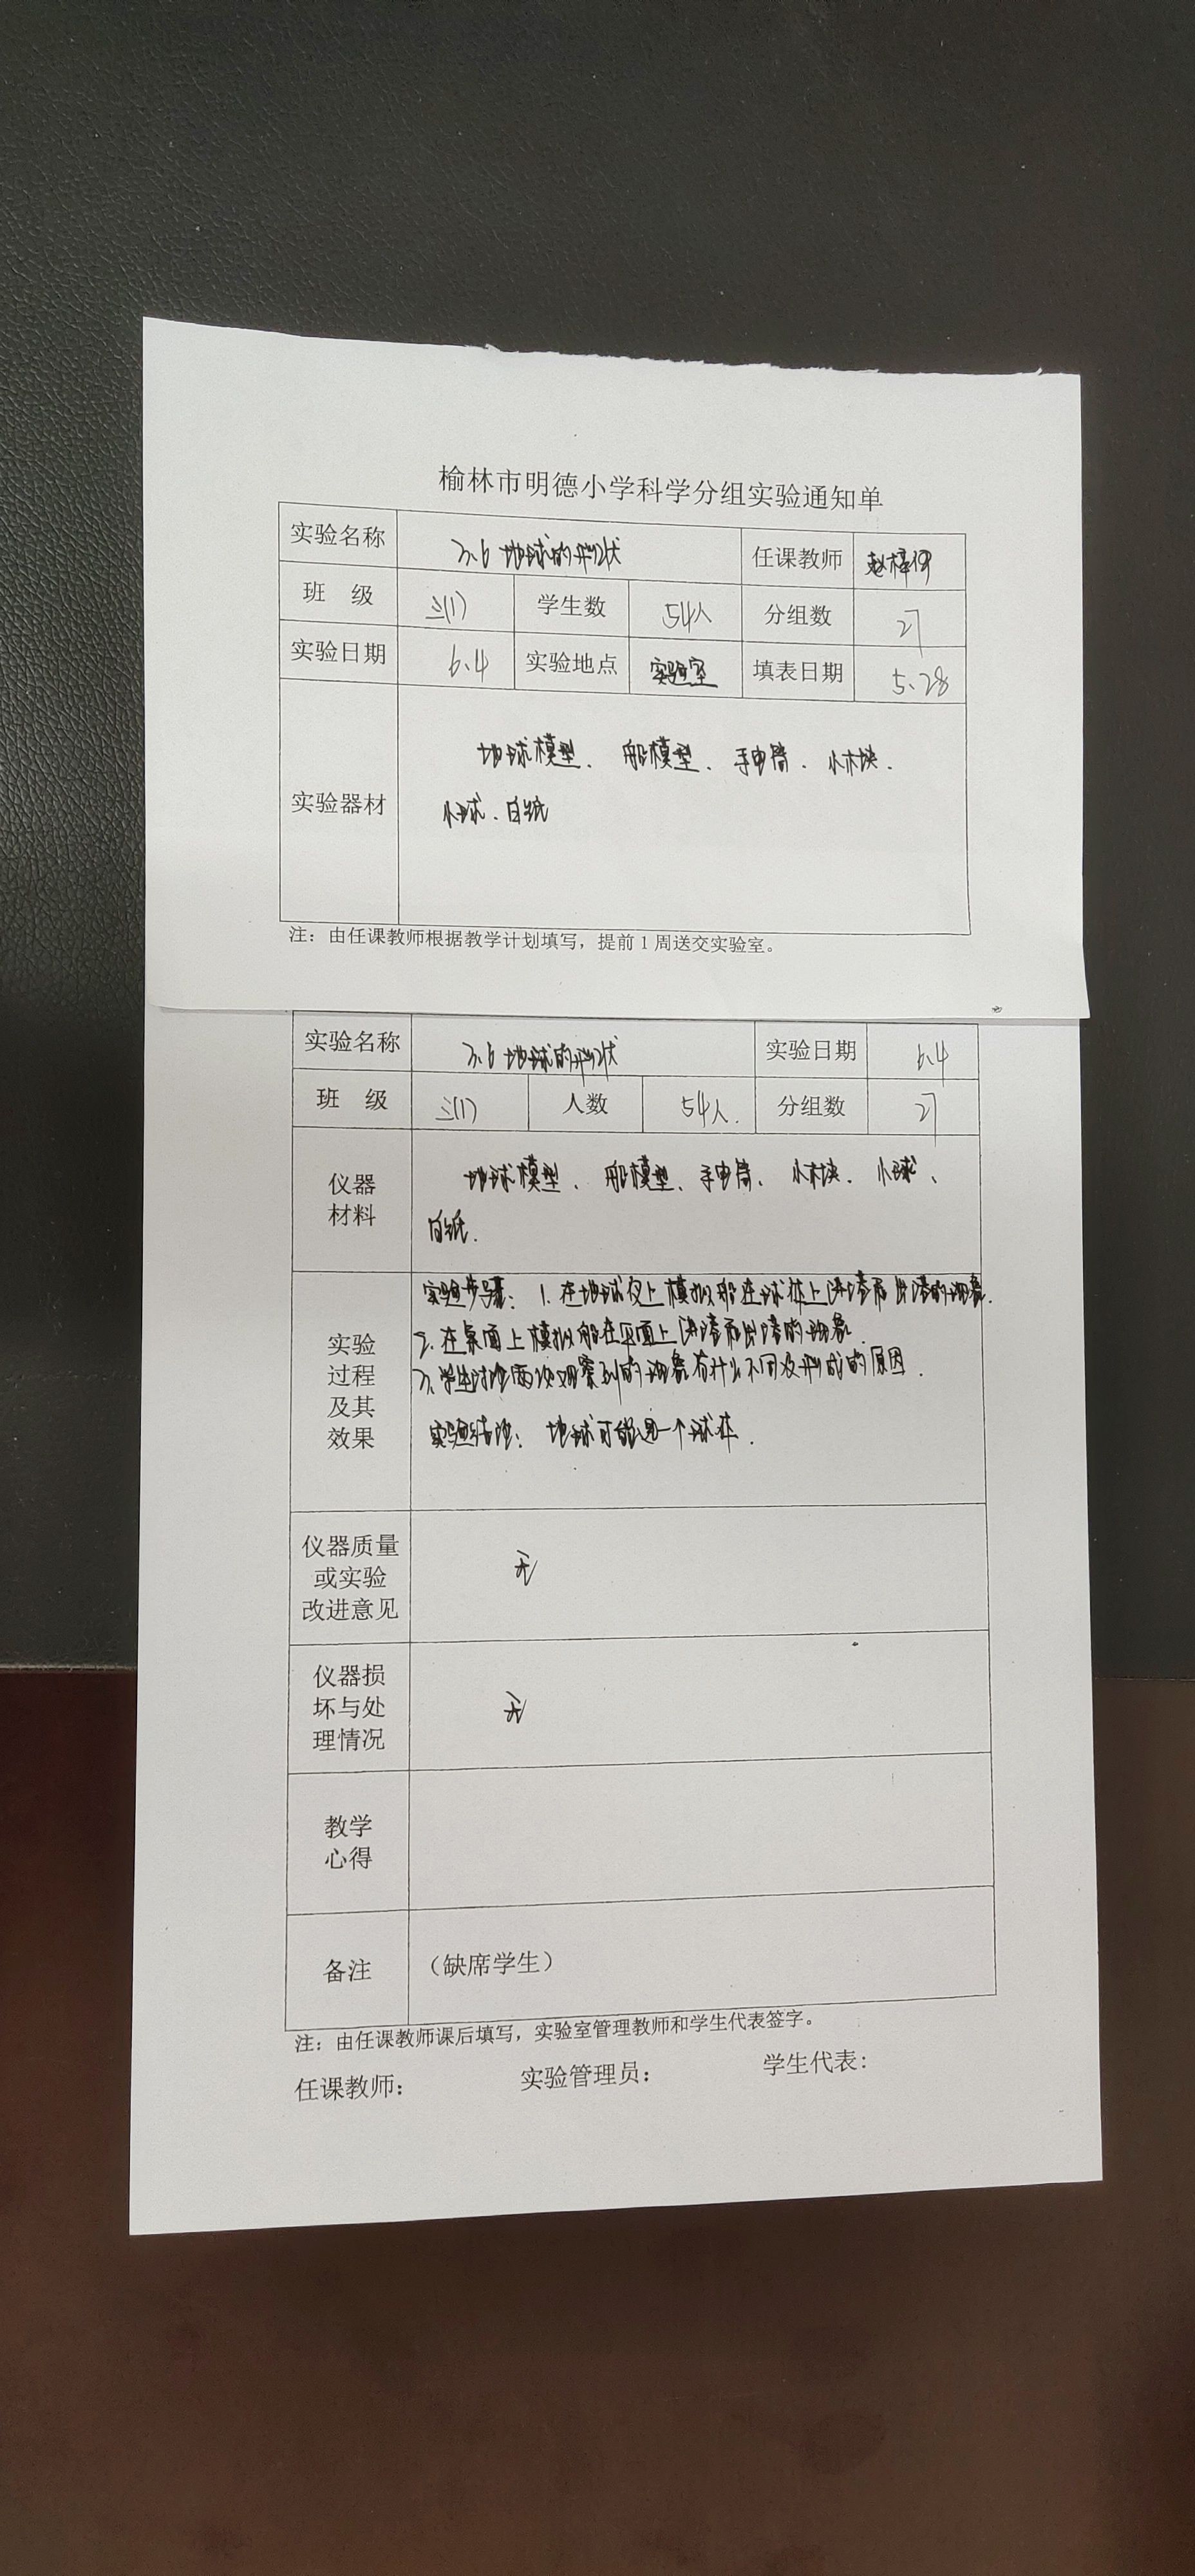 榆林市明德小学科学分组实验通知单
实验名称 3.6 地球的形状 任课教师 赵梓伊
班 级 三(1) 学生数 54人 分组数 27
实验日期 6.4 实验地点 实验室 填表日期 5.28
实验器材 地球模型、船模型、手电筒、小木块、
小球、白纸
注：由任课教师根据教学计划填写，提前1周送交实验室。
实验名称 3.6 地球的形状 实验日期 6.4
班 级 三(1) 人数 54人. 分组数 27
仪器
材料
地球模型、船模型、手电筒、小木块、小球、
白纸.
实验
过程
及其
效果
实验步骤：1.在地球仪上模拟船在球体上进港和出港的现象.
2.在桌面上模拟船在平面上进港和出港的现象.
3.学生讨论两次观察到的现象有什么不同及形成的原因.
实验结论：地球可能是一个球体.
仪器质量
或实验
改进意见
无
仪器损
坏与处
理情况
无
教学
心得
备注 （缺席学生）
注：由任课教师课后填写，实验室管理教师和学生代表签字。
任课教师： 实验管理员： 学生代表：